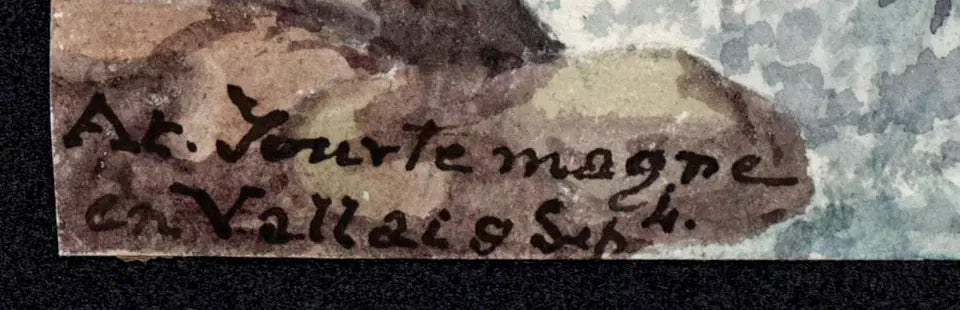 At. Yourtemagne
en Vallais Sep 4.